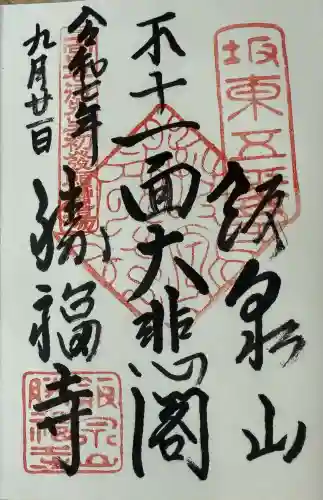 坂東五番
飯泉山
十一面大悲閣
令和七年
九月廿一日
勝福寺
飯泉山
勝福寺